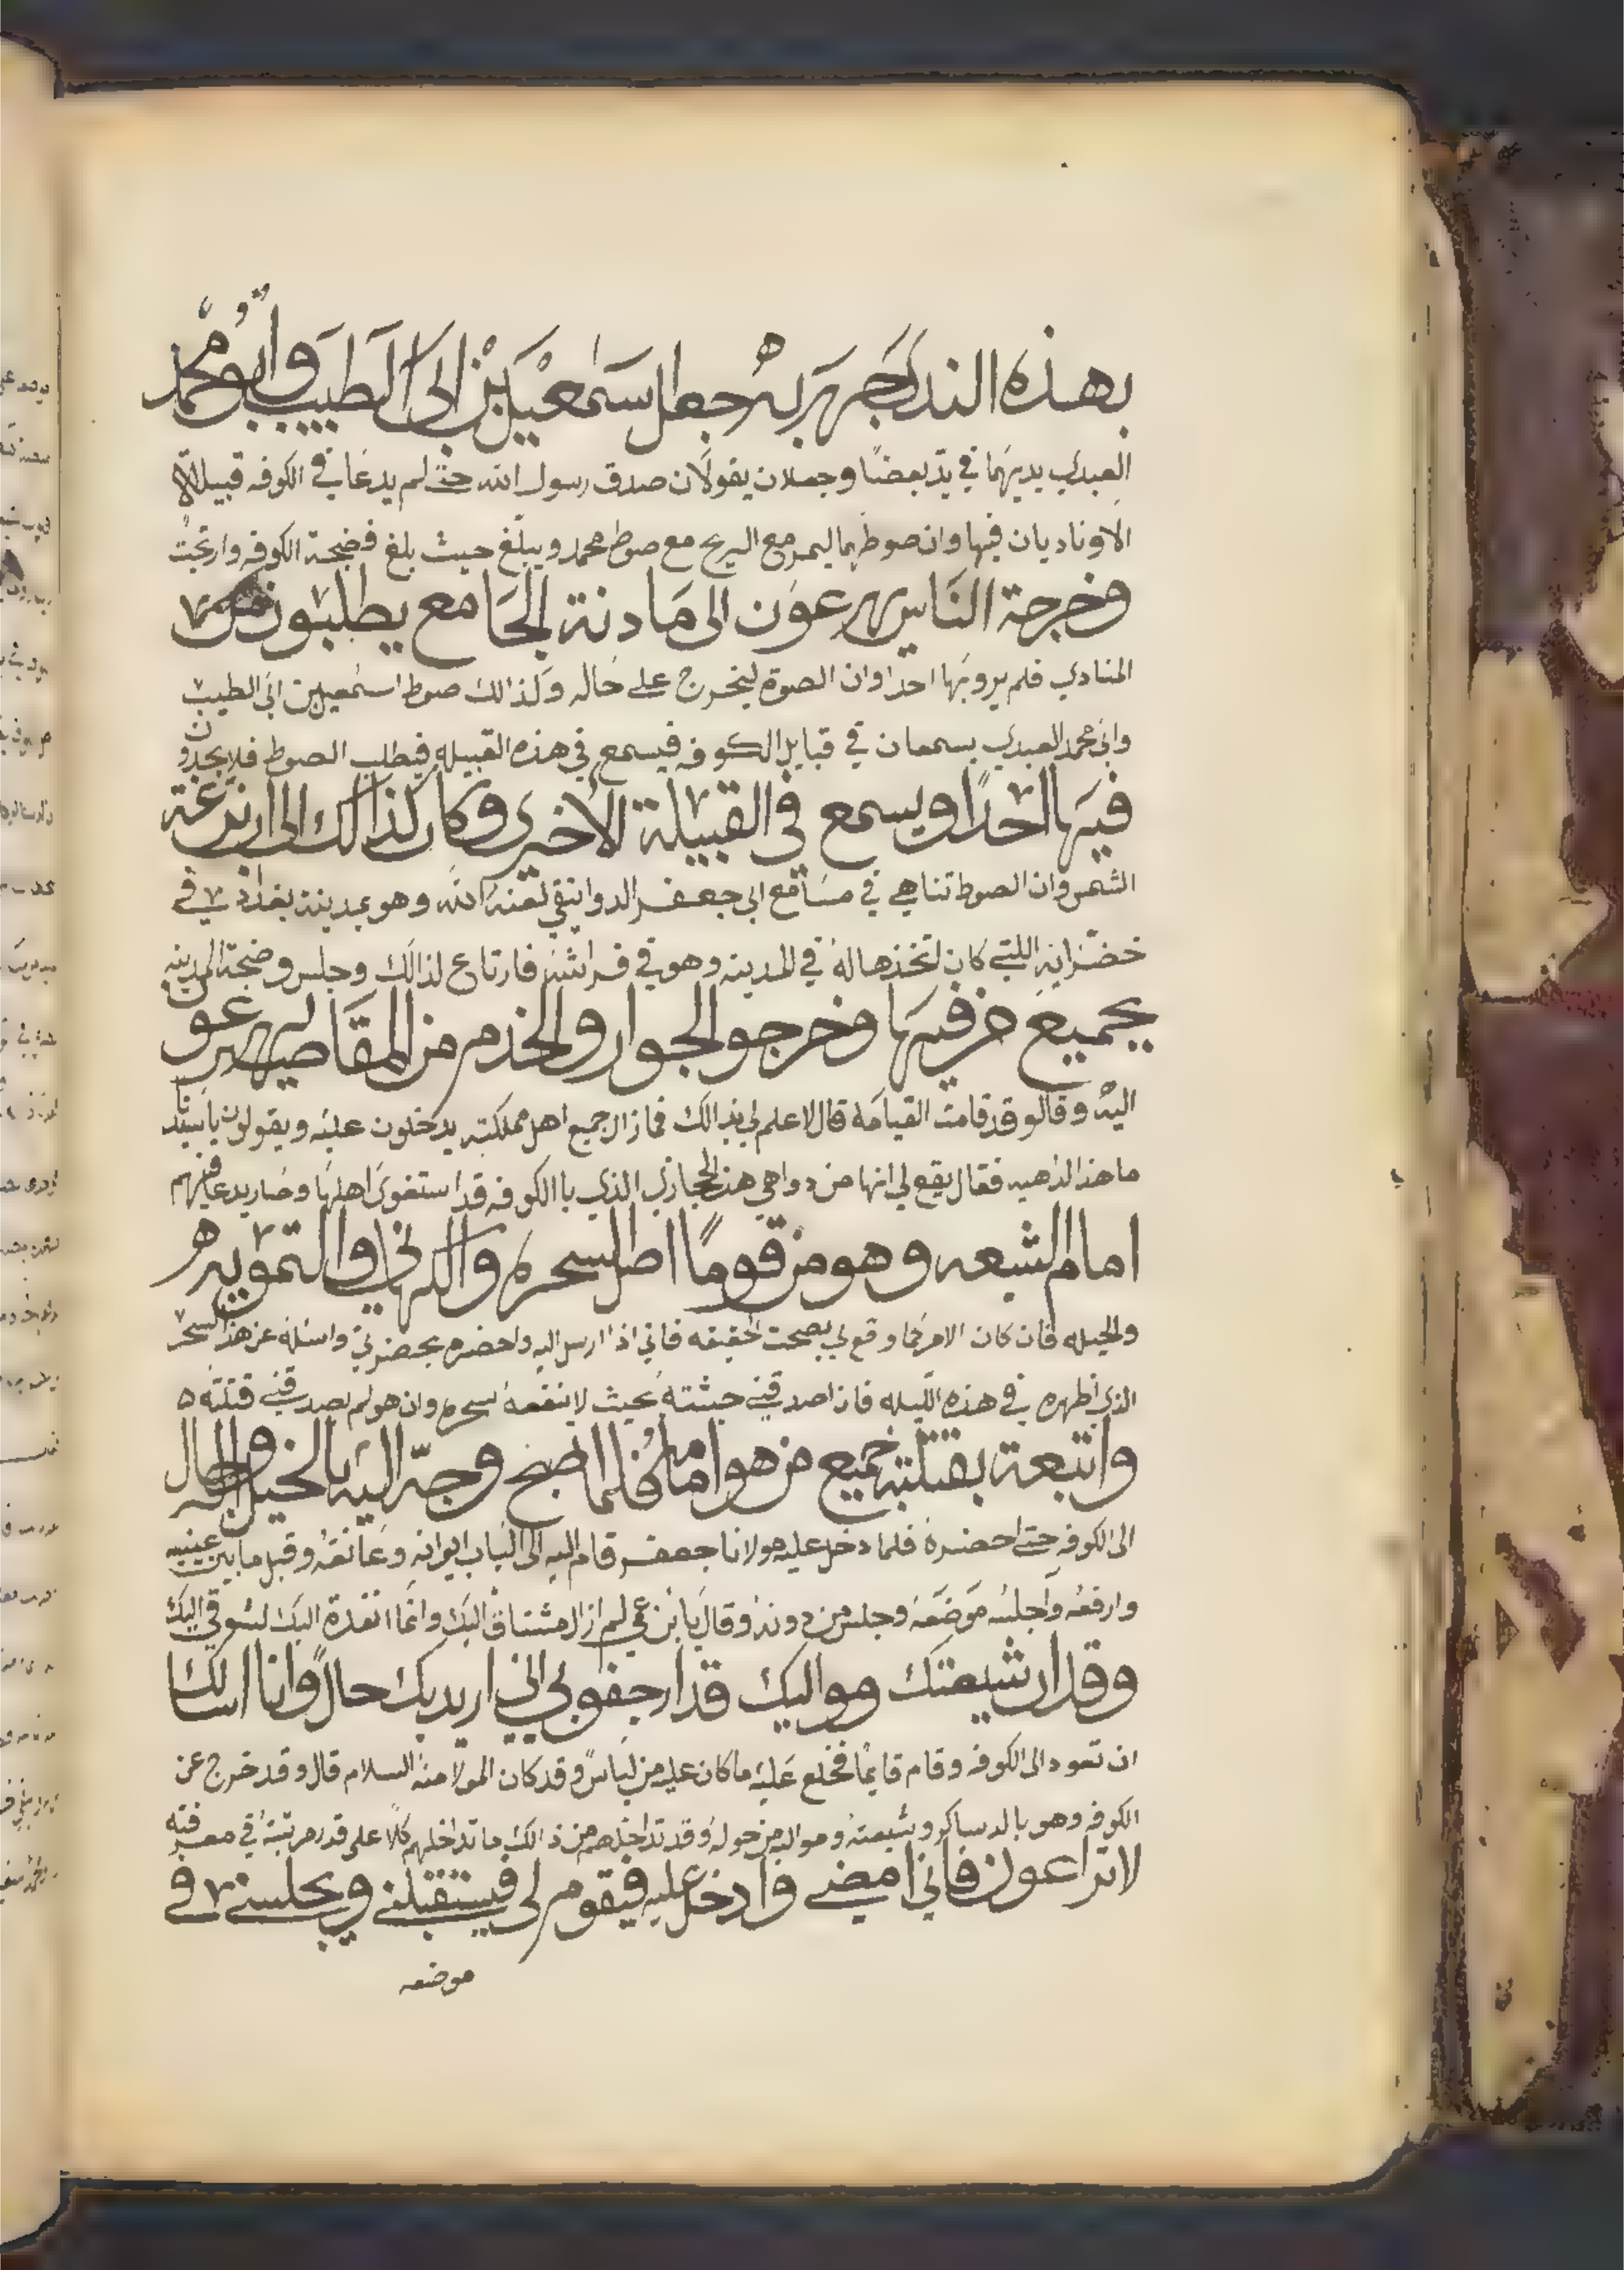 بهذه الندا جهر به جعل اسمعيل بن ابى الطيب وابو محمد
العبدي يديهما في يد بعضا وجعلان يقولان صدق رسول الله حتى لم يدعا في الكوفه قبيلة الا
الاوناديان فيها وان صوطهما ليمر مع الريح مع صوط محمد ويبلغ حيث بلغ فضجة الكوفه وارتجت
وخرجة الناس يهرعون الى مادنة الجامع يطلبون
المنادي فلم يرو بها احدا وان الصوة ليخرج على حاله وكذالك صوط اسمعيل بن ابى الطيب
وابى محمد العبدي يسمعان في قبايل الكوفه فيسمع في هذه القبيله فيطلب الصوط فلا يجدون
فيها احدا ويسمع في القبيلة الاخرى وكان كذالك الى ان بزغة
الشمس وان الصوط تناهى في مسامع ابى جعفر الدوانقي لعنه الله وهو بمدينة بغداد في
خضرانه اللتي كان اتخذها له في المدينه وهو في فراشه فارتاع لذالك وجلس وضجة المدينه
بجميع من فيها وخرجو الجوار والخدم من المقاصير يهرعون
اليه وقالو قد قامت القيامة قال لا علم لي بذالك فمازال جميع اهل مملكته يدخلون عليه ويقولون يا سيدنا
ما هذا الذهيه فقال يقع لي انها من دواهي هذا الحجازي الذي باالكوفه قد استغوى اهلها وصار يدعا فيهم
امام الشعه وهو من قوما اصل السحره والكهاني والتمويه
والحيله فان كان الامر كما وقع لي بصحت الحقيقه فاني اذا ارسل اليه واحضره بحضرتي واسئله عن هذا السحر
الذي اظهره في هذه الليله فان اصدقني حبثته بحيث لا ينفعه سحره وان هو لم يصدقني قتلته
واتبعة بقتلته جميع من هو امامه فلما اصبح وجه اليه بالخيل والرجال
الى الكوفه حتى احضره فلما دخل عليه مولانا جعفر قام اليه الى الباب ايوانه وعانقه وقبل ما بين عينيه
وارفعه واجلسه موضعه وجلس من دونه وقال يا بن عمي لم ازل مشتاق اليك وانما انفدة اليك لشوقي اليك
وقد ان شيعتك ومواليك قد ارجفو بي اني اريد بك حالا وانا اسالك
ان تعود الى الكوفه وقام قايما فخلع عليه ما كان عليه من لباس وقد كان المولا منه السلام قال وقد خرج عن
الكوفه وهو بالدساكر وشيعته ومواليه من حوله وقد تداخلهم من ذالك ما تداخلهم كلا على قدر مرتبته في معرفته
لا تراعون فاني امضي وادخل عليه فيقوم لي فيستقبلني ويجلسني في
موضعه